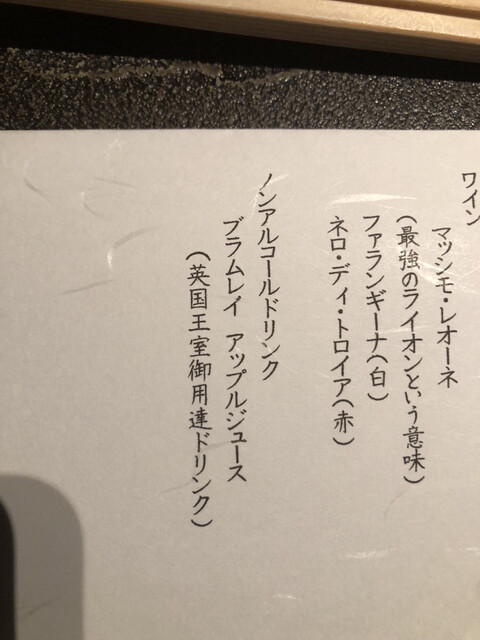 ワイン
マッシモ・レオーネ
(最強のライオンという意味)
ファランギーナ(白)
ネロ・ディ・トロイア(赤)
ノンアルコールドリンク
ブラムレイ アップルジュース
(英国王室御用達ドリンク)